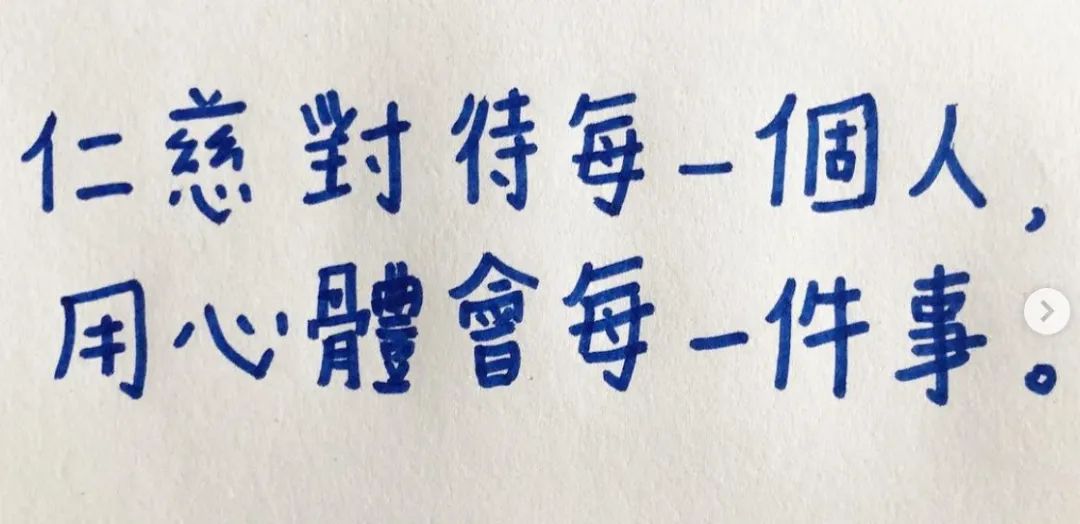 仁慈對待每一個人,
用心體會每一件事。